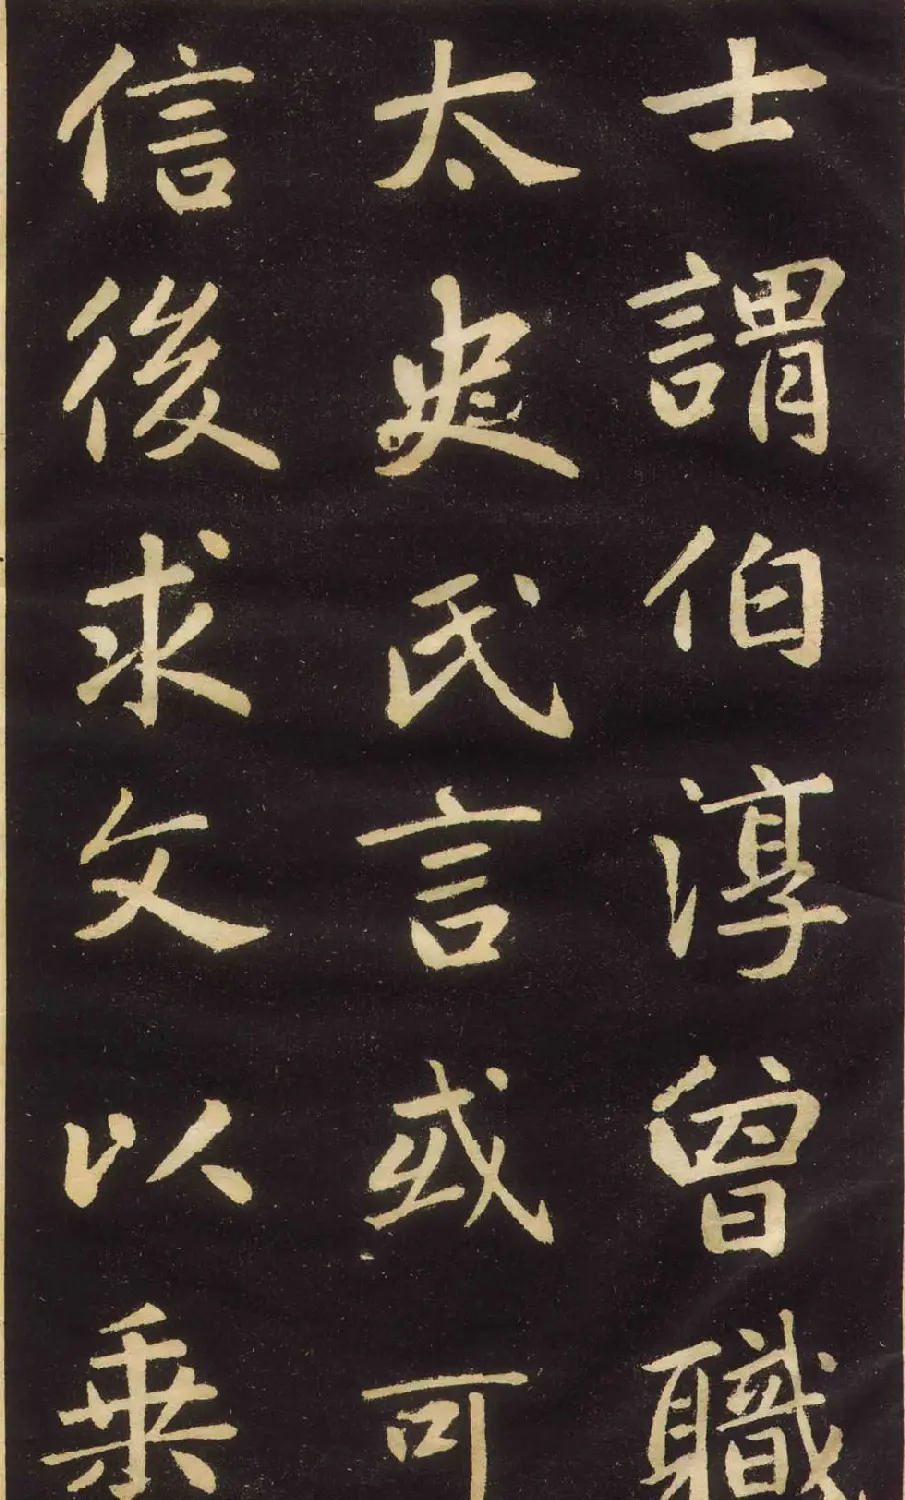 士謂伯淳曾職
太史氏言或可
信後求文以乗